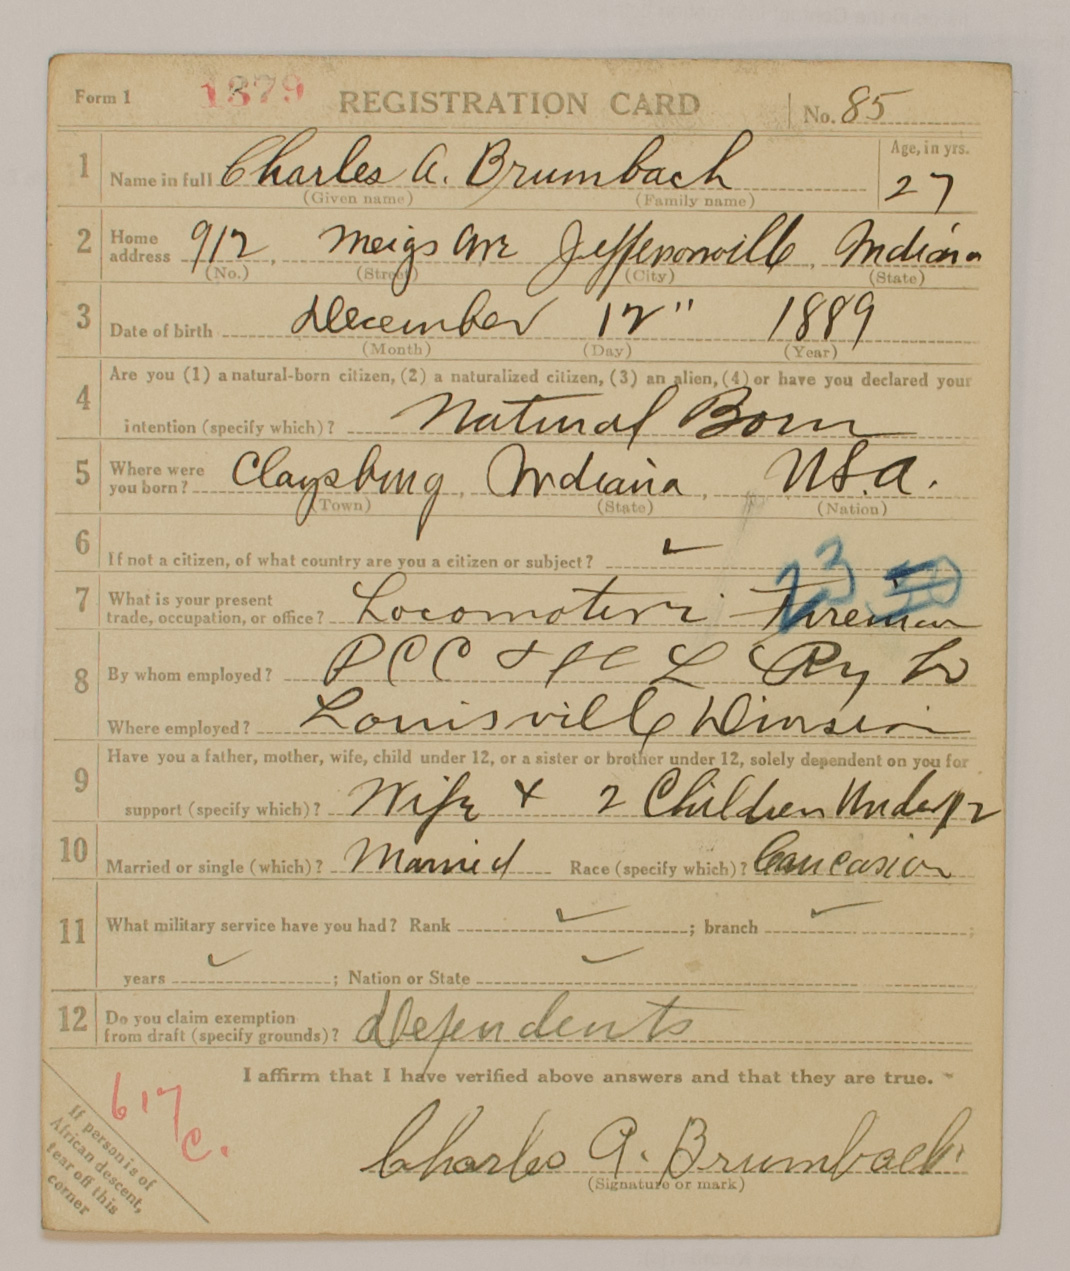 Form 1 1379 REGISTRATION CARD No. 85
1 Name in full Charles A. Brumbach Age, in yrs. 27
(Given name) (Family name)
2 Home address 912, Meigs Ave Jeffersonville, Indiana
(No.) (Street) (City) (State)
3 Date of birth December 12" 1889
(Month) (Day) (Year)
4 Are you (1) a natural-born citizen, (2) a naturalized citizen, (3) an alien, (4) or have you declared your
intention (specify which)? Natural Born
5 Where were you born? Claysburg, Indiana, U.S.A.
(Town) (State) (Nation)
6 If not a citizen, of what country are you a citizen or subject? ✓
23
7 What is your present trade, occupation, or office? Locomotive Fireman
8 By whom employed? P C C & St L Ry Co
Where employed? Louisville Division
9 Have you a father, mother, wife, child under 12, or a sister or brother under 12, solely dependent on you for
support (specify which)? Wife & 2 Children Under 12
10 Married or single (which)? Married Race (specify which)? Caucasian
11 What military service have you had? Rank ✓; branch ✓;
years ✓; Nation or State ✓
12 Do you claim exemption from draft (specify grounds)? Dependents
I affirm that I have verified above answers and that they are true.
617 C.
If person is of
African descent,
tear off this
corner
Charles A. Brumbach
(Signature or mark)